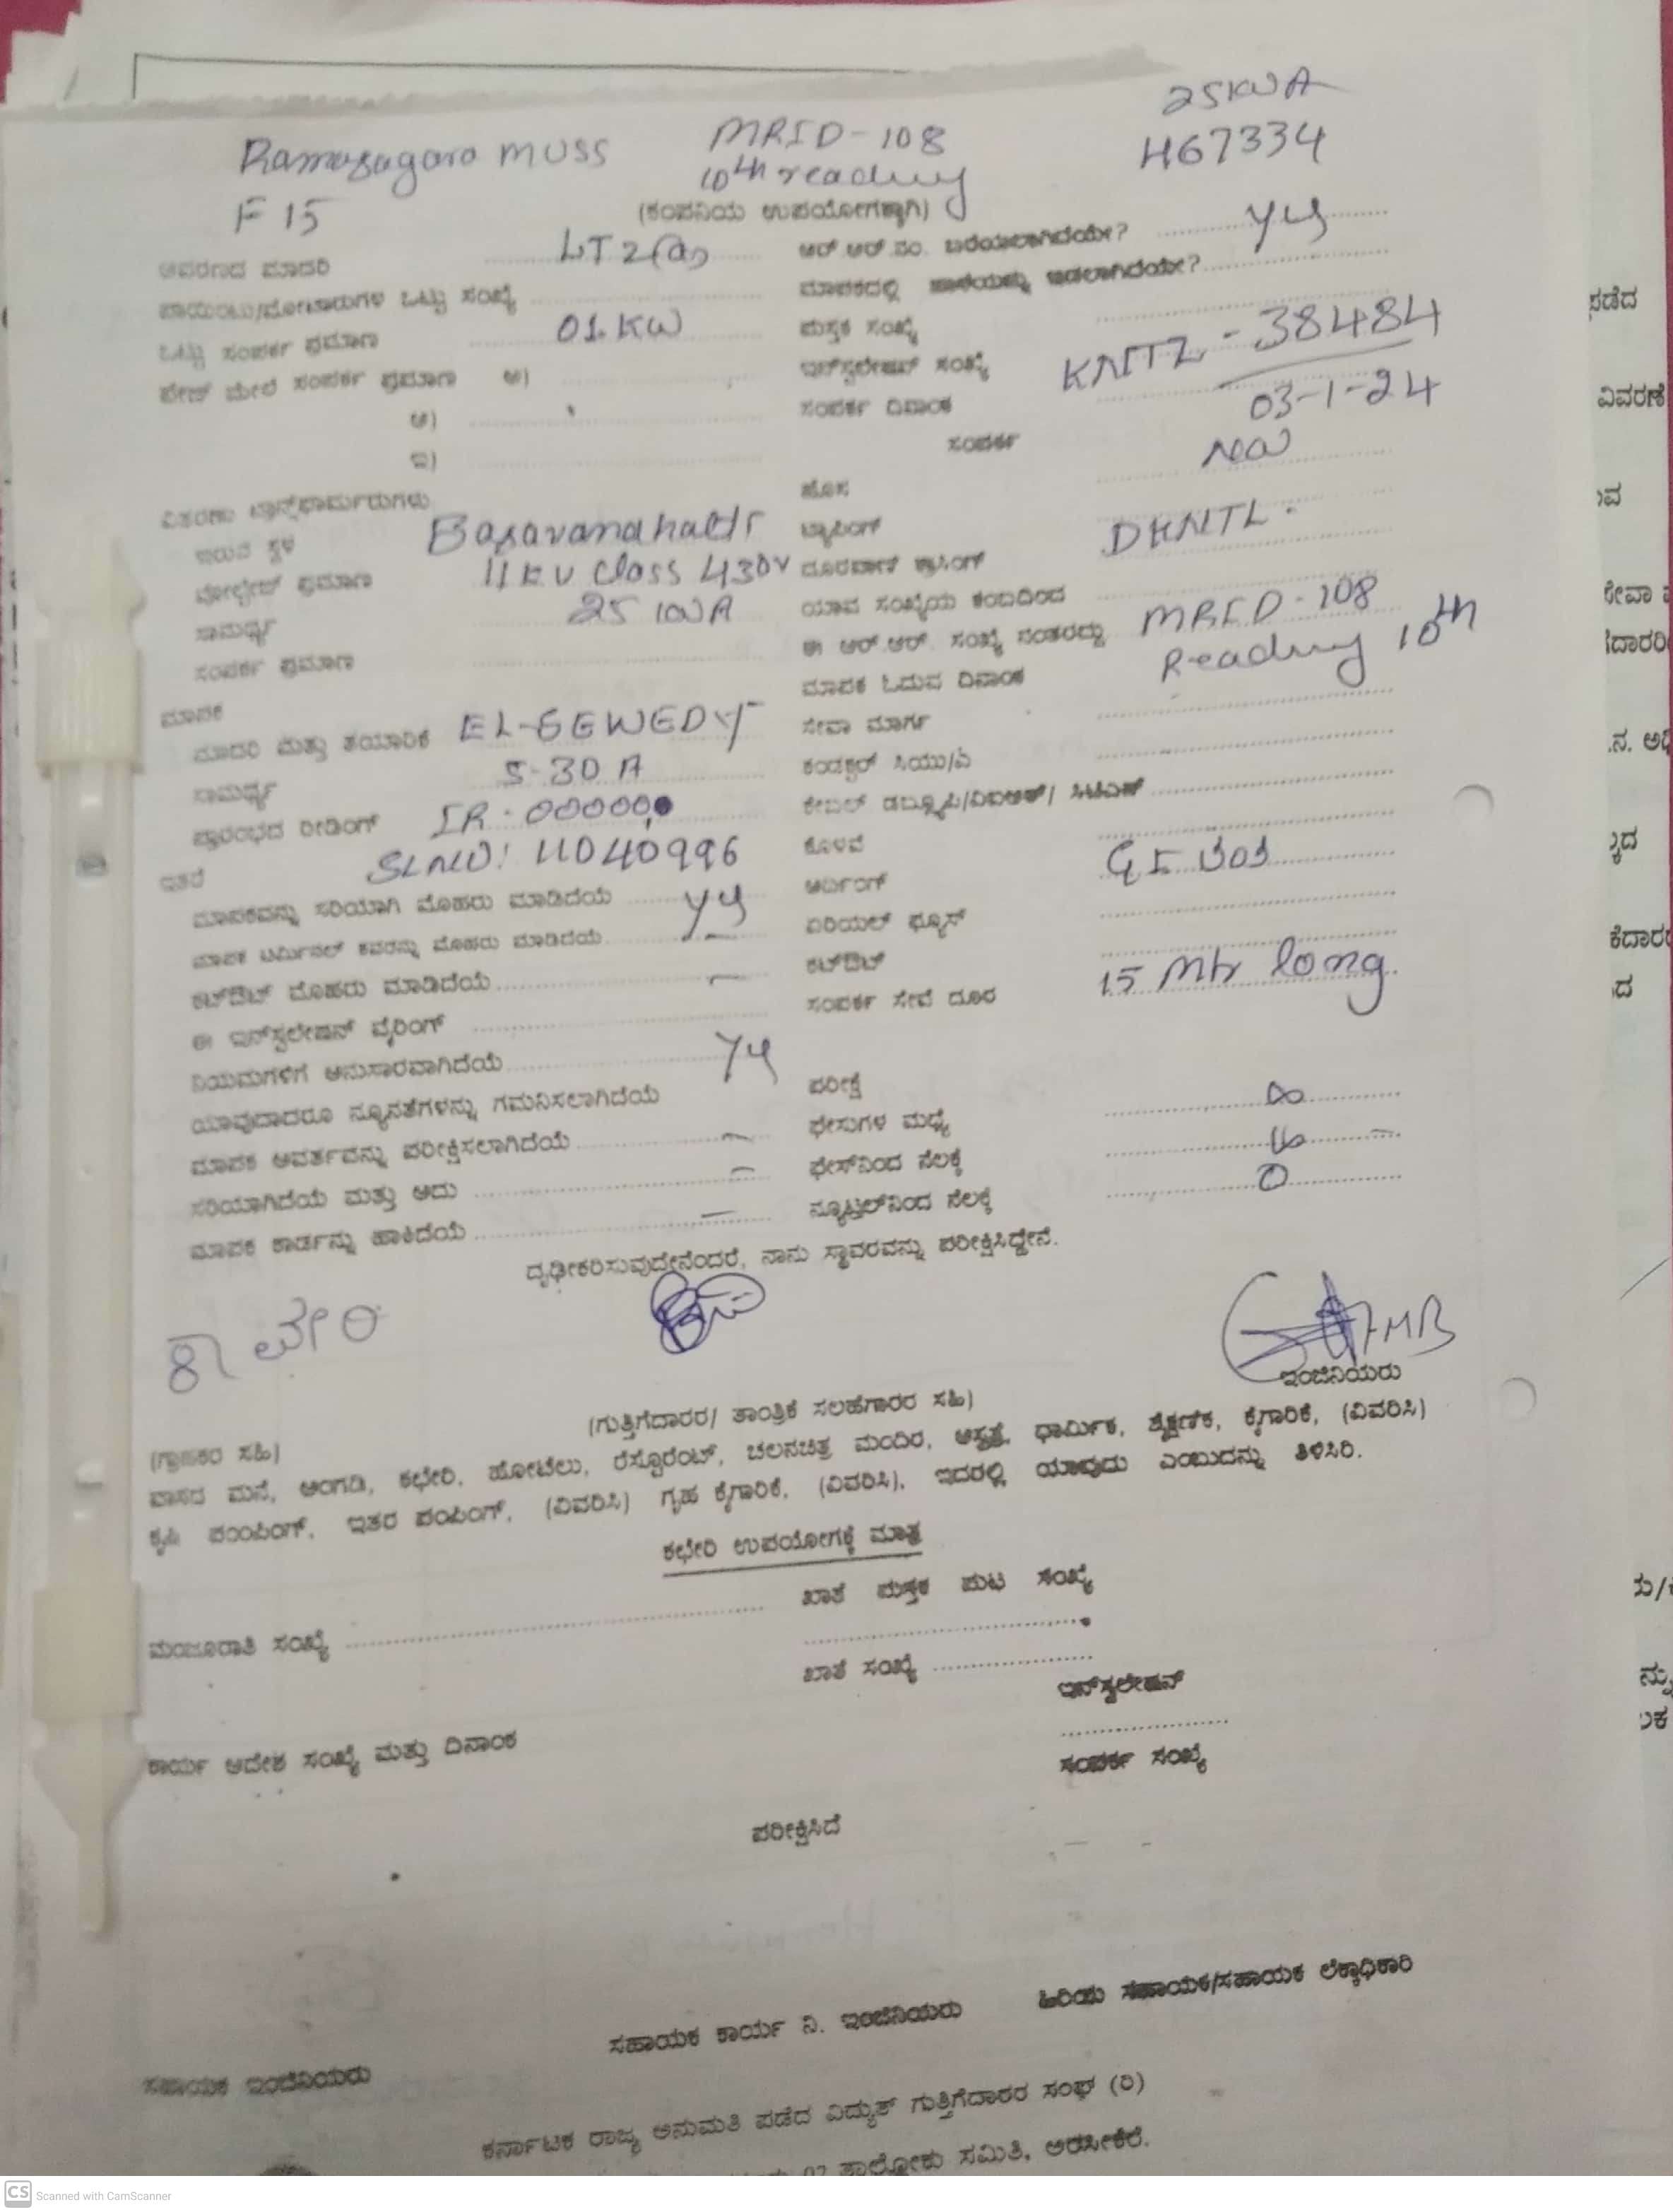 25KVA
Ramasagara MUSS MRID-108 H67334
F 15 10th reading
(ಕಂಪನಿಯ ಉಪಯೋಗಕ್ಕಾಗಿ)
ಆವರಣದ ಮಾದರಿ LT 2(a) ಆರ್.ಆರ್.ನಂ. ಬರೆಯಲಾಗಿದೆಯೇ?
ಪಾಯಿಂಟು/ಮೋಟಾರುಗಳ ಒಟ್ಟು ಸಂಖ್ಯೆ ಮಾಪಕದಲ್ಲಿ ಹಾಳೆಯನ್ನು ಇಡಲಾಗಿದೆಯೇ?
ಒಟ್ಟು ಸಂಪರ್ಕ ಪ್ರಮಾಣ 01.KW ಪುಸ್ತಕ ಸಂಖ್ಯೆ
ಪೇಜ್ ಮೇಲೆ ಸಂಪರ್ಕ ಪ್ರಮಾಣ ಅ) ಇನ್‌ಸ್ಟಲೇಷನ್ ಸಂಖ್ಯೆ KNTL-38484
ಆ) ಸಂಪರ್ಕ ದಿನಾಂಕ 03-1-24
ಇ) ಸಂಪರ್ಕ
ವಿತರಣಾ ಟ್ರಾನ್ಸ್‌ಫಾರ್ಮರುಗಳು ಹೊಸ New
ಇರುವ ಸ್ಥಳ Basavanahalli ಟ್ಯಾಪಿಂಗ್
ವೋಲ್ಟೇಜ್ ಪ್ರಮಾಣ 11KV Class 430V ದೂರವಾಣಿ ಕ್ರಾಸಿಂಗ್ DKNTL.
ಸಾಮರ್ಥ್ಯ 25 KVA ಯಾವ ಸಂಖ್ಯೆಯ ಕಂಬದಿಂದ
ಸಂಪರ್ಕ ಪ್ರಮಾಣ ಈ ಆರ್.ಆರ್. ಸಂಖ್ಯೆ ನಂತರದ್ದು MRID-108
ಮಾಪಕ ಮಾಪಕ ಓದುವ ದಿನಾಂಕ Reading 10th
ಮಾದರಿ ಮತ್ತು ತಯಾರಿಕೆ EL-SEWEDY ಸೇವಾ ಮಾರ್ಗ
ಸಾಮರ್ಥ್ಯ 5-30A ಕಂಡಕ್ಟರ್ ಸಿಯು/ಎ
ಪ್ರಾರಂಭದ ರೀಡಿಂಗ್ IR-00000.0 ಕೇಬಲ್ ಡಬ್ಲ್ಯೂಪಿ/ವಿಐಆರ್/ ಸಿಟಿಎಸ್
ಇತರೆ SLNO: 11040996 ಕೊಳವೆ
ಮಾಪಕವನ್ನು ಸರಿಯಾಗಿ ಮೊಹರು ಮಾಡಿದೆಯೆ ಅರ್ಥಿಂಗ್
ಮಾಪಕ ಟರ್ಮಿನಲ್ ಕವರನ್ನು ಮೊಹರು ಮಾಡಿದೆಯೆ ಏರಿಯಲ್ ಫ್ಯೂಸ್
ಕಟ್‌ಔಟ್ ಮೊಹರು ಮಾಡಿದೆಯೆ ಕಟ್‌ಔಟ್
ಈ ಇನ್‌ಸ್ಟಲೇಷನ್ ವೈರಿಂಗ್ ಸಂಪರ್ಕ ಸೇವೆ ದೂರ 15 Mtr long
ನಿಯಮಗಳಿಗೆ ಅನುಸಾರವಾಗಿದೆಯೆ
ಯಾವುದಾದರೂ ನ್ಯೂನತೆಗಳನ್ನು ಗಮನಿಸಲಾಗಿದೆಯೆ ಪರೀಕ್ಷೆ
ಮಾಪಕ ಆವರ್ತವನ್ನು ಪರೀಕ್ಷಿಸಲಾಗಿದೆಯೆ ಫೇಸುಗಳ ಮಧ್ಯೆ ∞
ಸರಿಯಾಗಿದೆಯೆ ಮತ್ತು ಅದು ಫೇಸ್‌ನಿಂದ ನೆಲಕ್ಕೆ
ಮಾಪಕ ಕಾರ್ಡನ್ನು ಹಾಕಿದೆಯೆ ನ್ಯೂಟ್ರಲ್‌ನಿಂದ ನೆಲಕ್ಕೆ 0
ದೃಢೀಕರಿಸುವುದೇನೆಂದರೆ, ನಾನು ಸ್ಥಾವರವನ್ನು ಪರೀಕ್ಷಿಸಿದ್ದೇನೆ.
ಕಾವೇರಿ
ಇಂಜಿನಿಯರು
(ಗ್ರಾಹಕರ ಸಹಿ) (ಗುತ್ತಿಗೆದಾರರ/ ತಾಂತ್ರಿಕ ಸಲಹೆಗಾರರ ಸಹಿ)
ವಾಸದ ಮನೆ, ಅಂಗಡಿ, ಕಛೇರಿ, ಹೋಟೆಲು, ರೆಸ್ಟೊರೆಂಟ್, ಚಲನಚಿತ್ರ ಮಂದಿರ, ಆಸ್ಪತ್ರೆ, ಧಾರ್ಮಿಕ, ಶೈಕ್ಷಣಿಕ, ಕೈಗಾರಿಕೆ, (ವಿವರಿಸಿ)
ಕೃಷಿ ಪಂಪಿಂಗ್, ಇತರ ಪಂಪಿಂಗ್, (ವಿವರಿಸಿ) ಗೃಹ ಕೈಗಾರಿಕೆ, (ವಿವರಿಸಿ), ಇದರಲ್ಲಿ ಯಾವುದು ಎಂಬುದನ್ನು ತಿಳಿಸಿರಿ.
ಕಛೇರಿ ಉಪಯೋಗಕ್ಕೆ ಮಾತ್ರ
ಮಂಜೂರಾತಿ ಸಂಖ್ಯೆ ಖಾತೆ ಪುಸ್ತಕ ಪುಟ ಸಂಖ್ಯೆ
ಖಾತೆ ಸಂಖ್ಯೆ
ಇನ್‌ಸ್ಟಲೇಷನ್
ಕಾರ್ಯ ಆದೇಶ ಸಂಖ್ಯೆ ಮತ್ತು ದಿನಾಂಕ ಸಂಪರ್ಕ ಸಂಖ್ಯೆ
ಪರೀಕ್ಷಿಸಿದೆ
ಸಹಾಯಕ ಇಂಜಿನಿಯರು ಸಹಾಯಕ ಕಾರ್ಯ ನಿ. ಇಂಜಿನಿಯರು ಹಿರಿಯ ಸಹಾಯಕ/ಸಹಾಯಕ ಲೆಕ್ಕಾಧಿಕಾರಿ
ಕರ್ನಾಟಕ ರಾಜ್ಯ ಅನುಮತಿ ಪಡೆದ ವಿದ್ಯುತ್ ಗುತ್ತಿಗೆದಾರರ ಸಂಘ (ರಿ)
ತಾಲ್ಲೋಕು ಸಮಿತಿ, ಅರಸೀಕೆರೆ.
CS Scanned with CamScanner